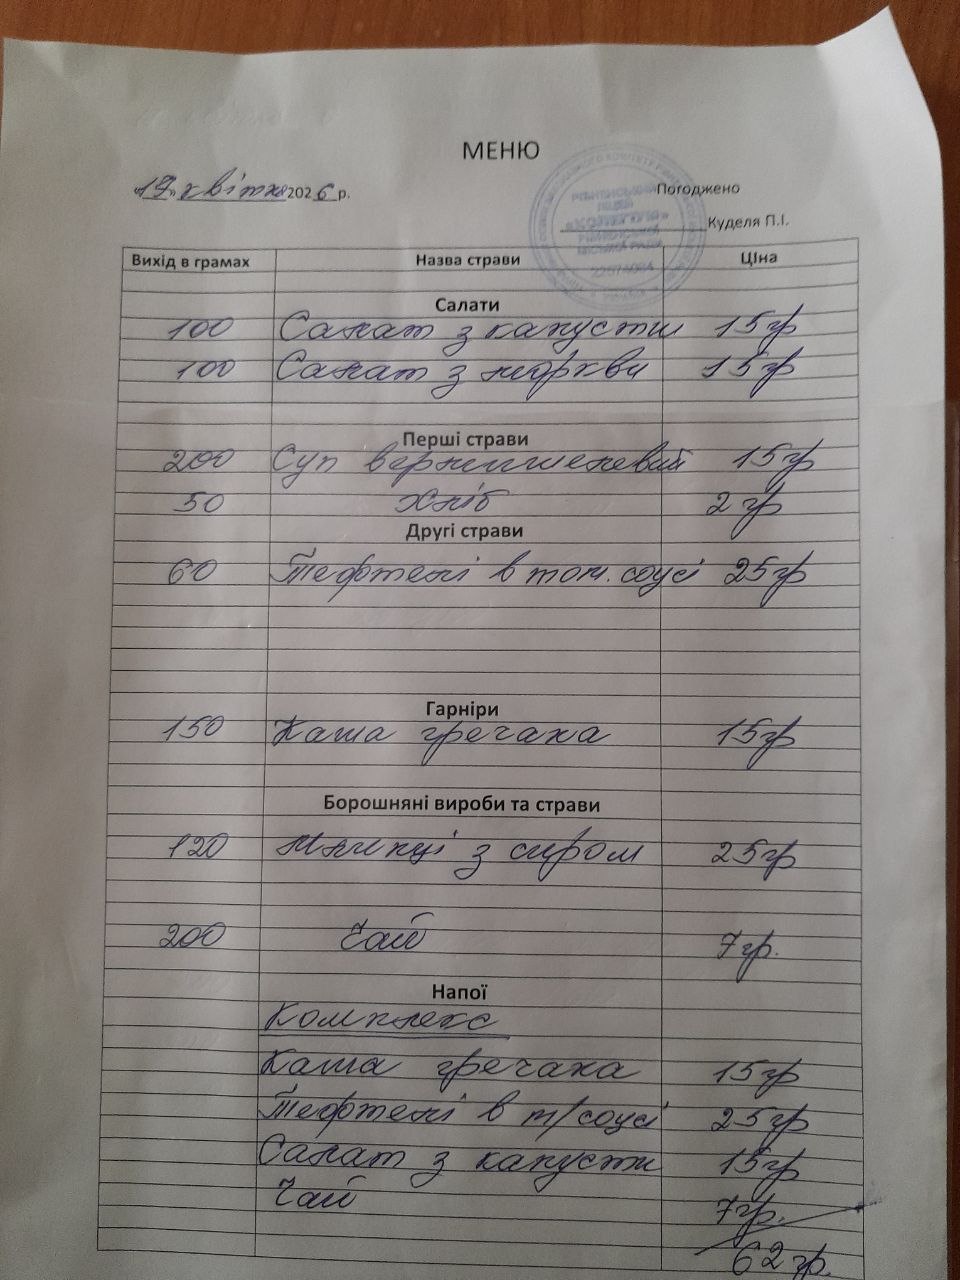 МЕНЮ
квітня 2026 р.
Погоджено
Куделя П.І.
«КОЛЕГІУМ»
22574084
Вихід в грамах Назва страви Ціна
Салати
100 Салат з капусти 15гр
100 Салат з моркви 15гр
Перші страви
200 Суп вермишелевий 15гр
50 Хліб 2гр
Другі страви
60 Тефтелі в том. соусі 25гр
Гарніри
150 Каша гречана 15гр
Борошняні вироби та страви
120 Млинці з сиром 25гр
200 Чай 7гр.
Напої
Комплекс
Каша гречана 15гр
Тефтелі в т/соусі 25гр
Салат з капусти 15гр
Чай 7гр.
62гр.